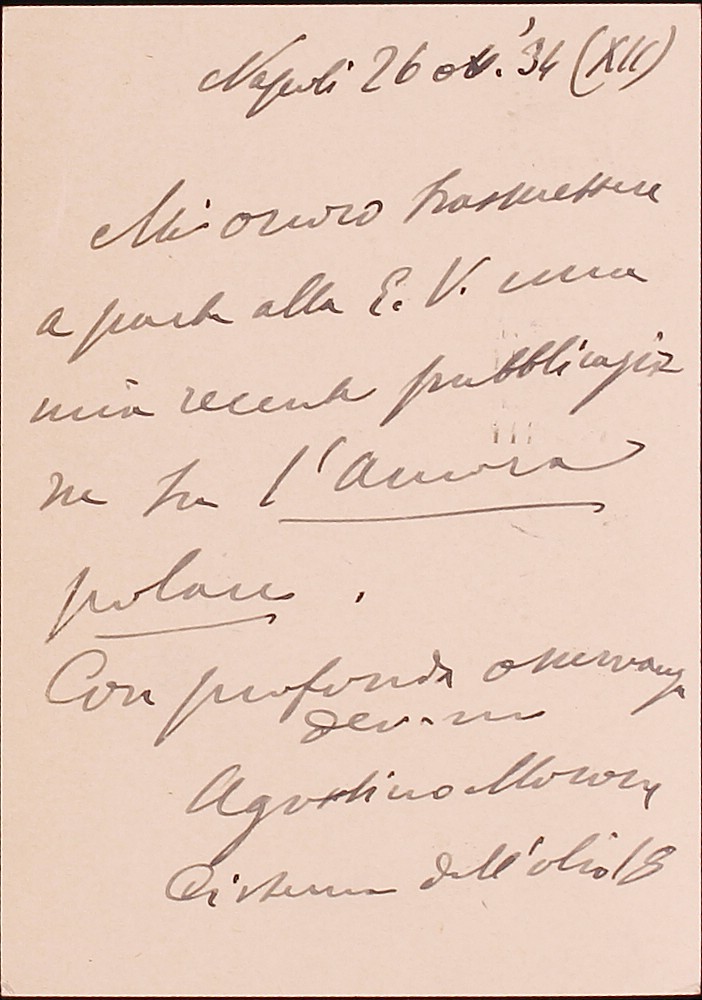 Napoli 26 ott. '34 (XII)
Mi onoro trasmettere
a parte alla E. V. una
mia recente pubblicazio
ne su l'Aurora
polare.
Con profonda osservanza
dev.mo
Agostino
Cisterna dell'olio 18